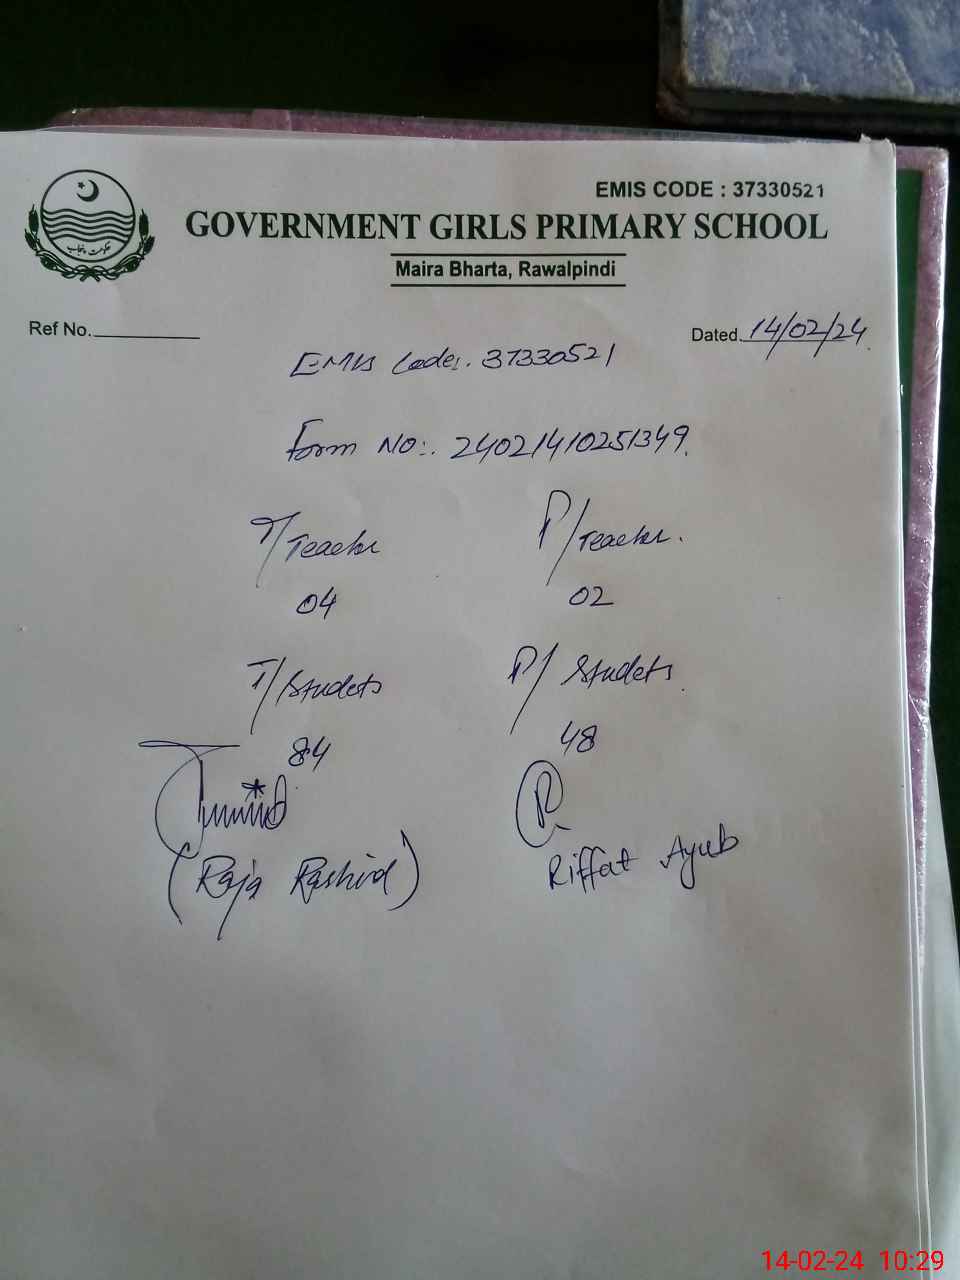 حکومت پنجاب
EMIS CODE : 37330521
GOVERNMENT GIRLS PRIMARY SCHOOL
Maira Bharta, Rawalpindi
Ref No.
Dated. 14/02/24
EMIS Code:. 37330521
Form NO:. 24021410251349.
T/Teacher P/Teacher.
04 02
T/Studets P/Studets.
84 48
(Raja Rashid) Riffat Ayub
14-02-24 10:29